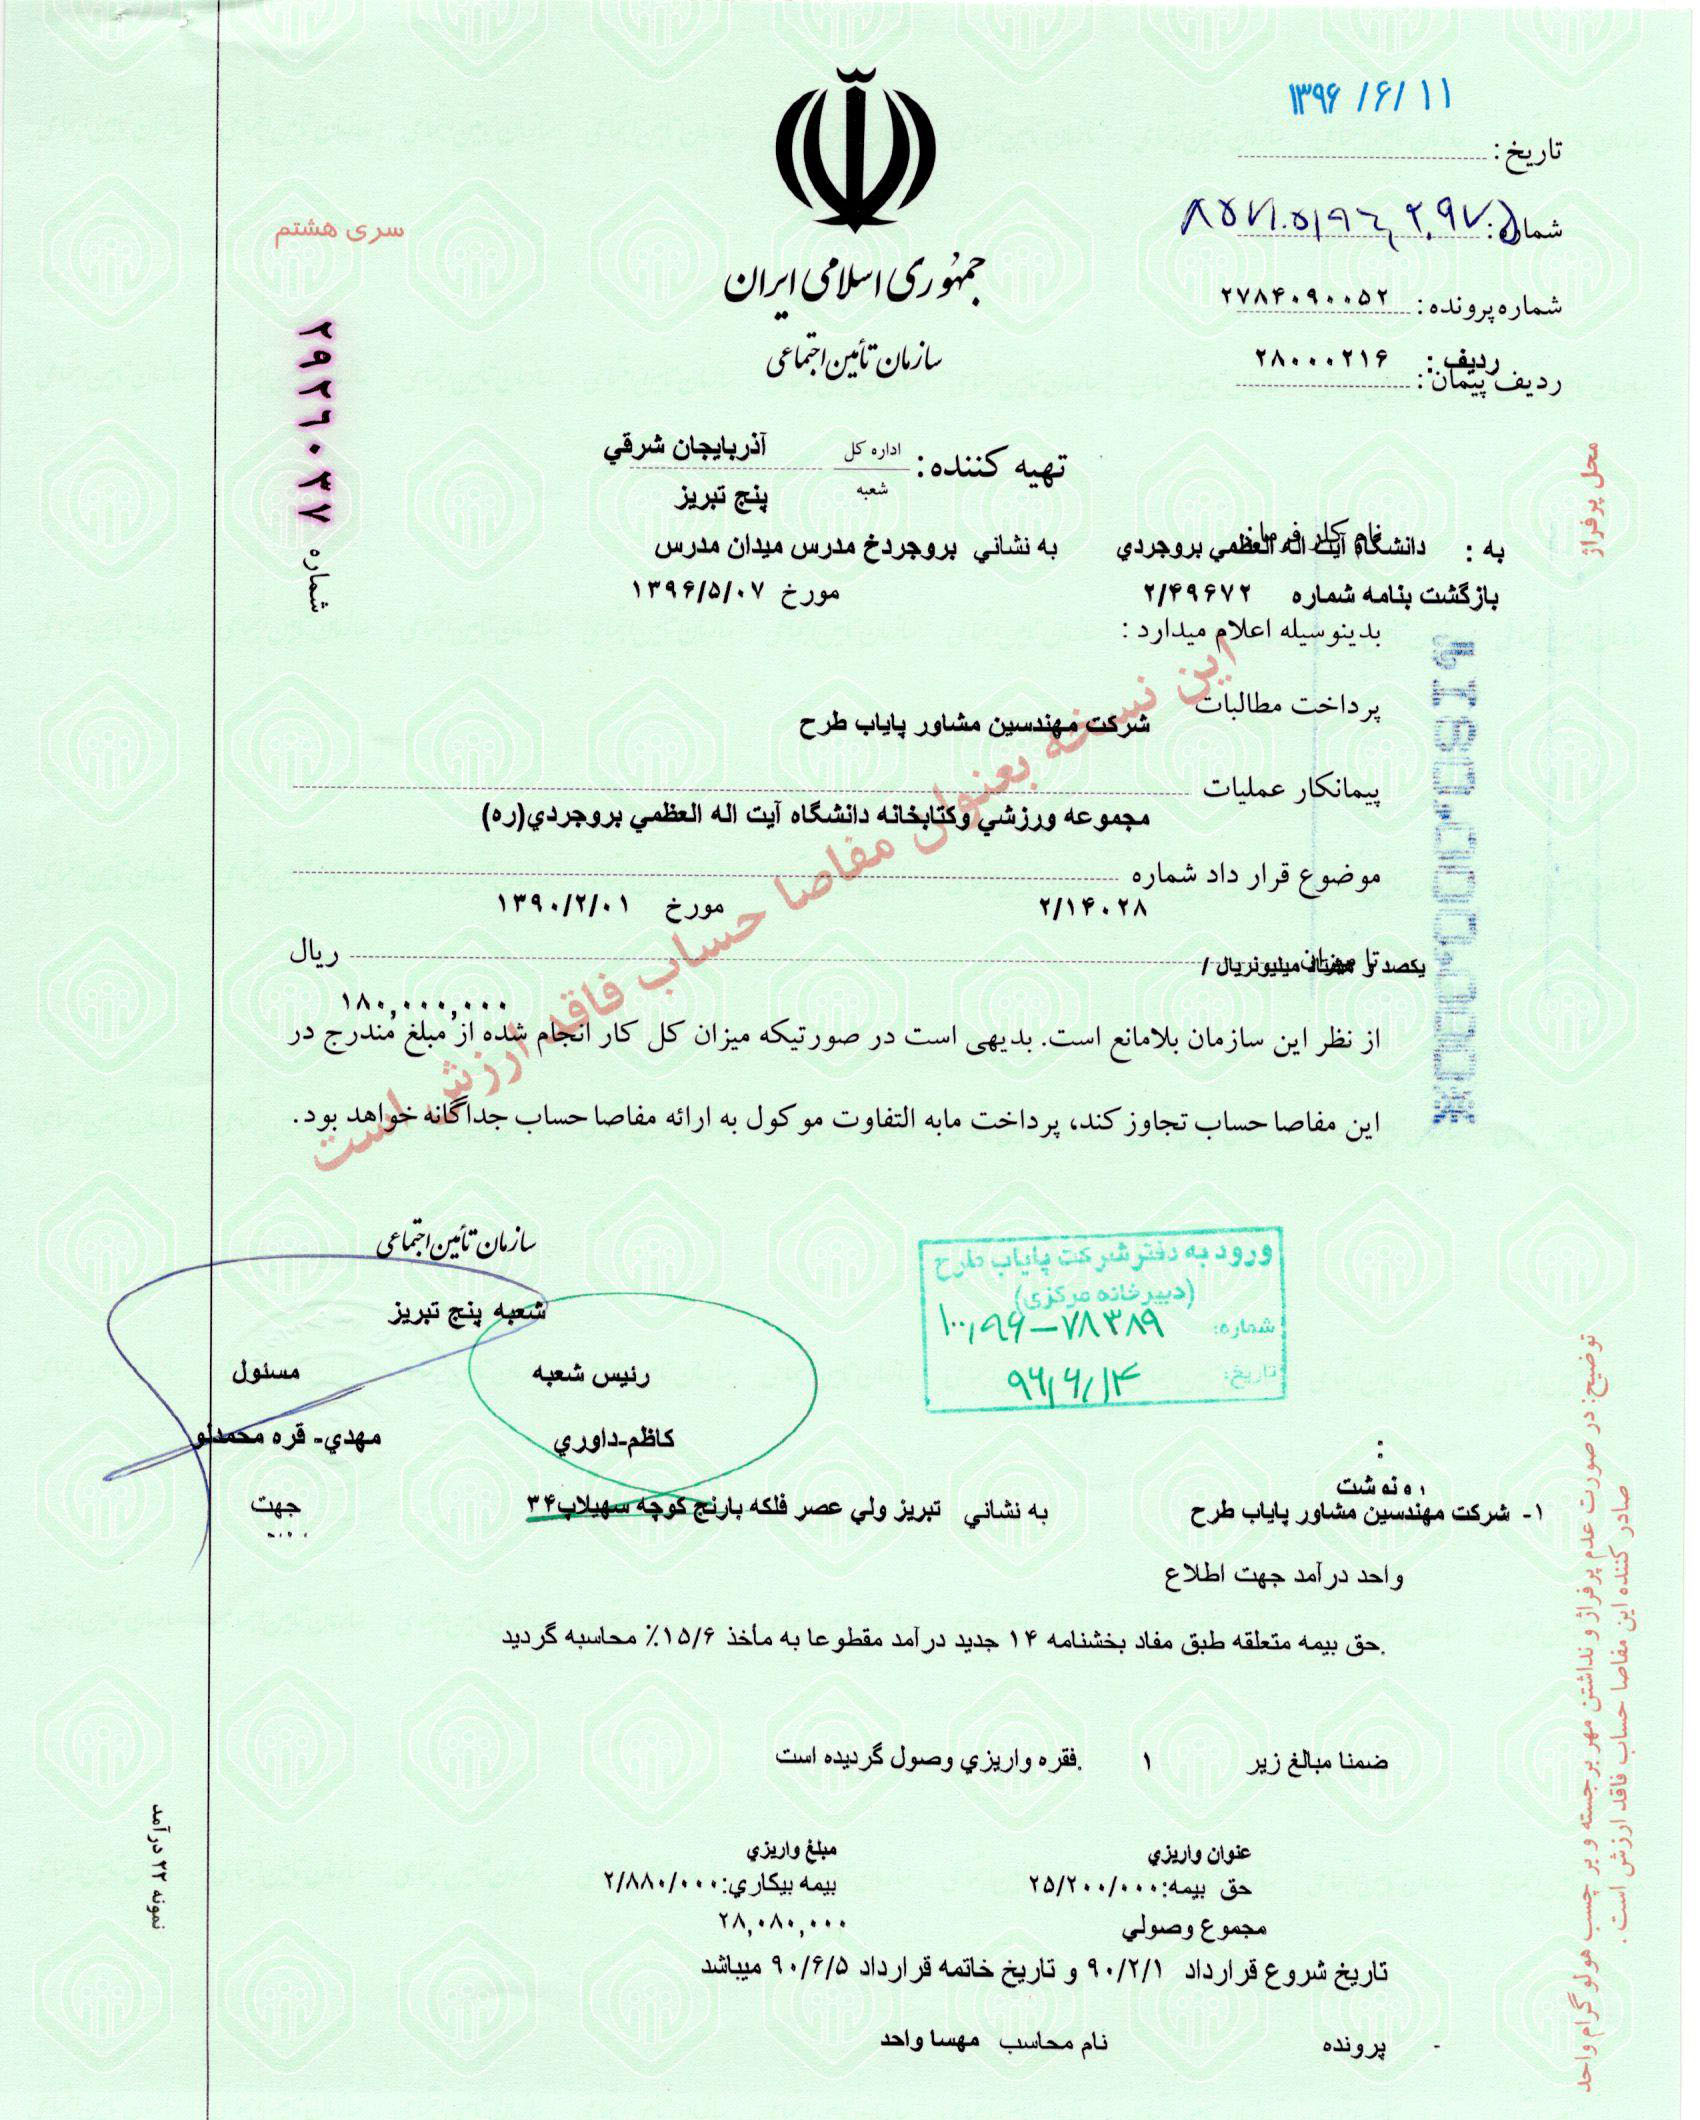 ۱۳۹۶/۶/۱۱
تاریخ:
شماره:
جمهوری اسلامی ایران
سازمان تأمین اجتماعی
شماره پرونده: ۲۷۸۴۰۹۰۰۵۲
ردیف : ۲۸۰۰۰۲۱۶
ردیف پیمان:
سری هشتم
شماره ۲۹۲۹۰۳۷
محل پرفراژ
تهیه کننده: اداره کل آذربایجان شرقي
شعبه پنج تبریز
به : دانشگاه آیت اله العظمي بروجردي به نشاني بروجردخ مدرس میدان مدرس
بازگشت بنامه شماره ۲/۴۹۶۷۲ مورخ ۱۳۹۶/۵/۰۷
بدینوسیله اعلام میدارد :
پرداخت مطالبات
شرکت مهندسین مشاور پایاب طرح
پیمانکار عملیات
مجموعه ورزشي وکتابخانه دانشگاه آیت اله العظمي بروجردي(ره)
موضوع قرار داد شماره
۲/۱۴۰۲۸ مورخ ۱۳۹۰/۲/۰۱
تا میزان یکصد و هشتاد میلیونریال / ریال
۱۸۰,۰۰۰,۰۰۰
از نظر این سازمان بلامانع است. بدیهی است در صورتیکه میزان کل کار انجام شده از مبلغ مندرج در
این مفاصا حساب تجاوز کند، پرداخت مابه التفاوت موکول به ارائه مفاصا حساب جداگانه خواهد بود.
این نسخه بعنوان مفاصا حساب فاقد ارزش است
سازمان تأمین اجتماعی
شعبه پنج تبریز
رئیس شعبه مسئول
کاظم-داوري مهدي- قره محمدلو
ورود به دفتر شرکت پایاب طرح
(دبیرخانه مرکزی)
شماره: ۱۰۰,۹۶-۷۸۳۸۹
تاریخ: ۹۶/۶/۱۴
:
رونوشت
۱- شرکت مهندسین مشاور پایاب طرح به نشاني تبریز ولي عصر فلکه بارنج کوچه سهیلاپ۳۴ جهت
واحد درآمد جهت اطلاع
.حق بیمه متعلقه طبق مفاد بخشنامه ۱۴ جدید درآمد مقطوعا به مأخذ ۱۵/۶٪ محاسبه گردید
ضمنا مبالغ زیر ۱ .فقره واریزي وصول گردیده است
عنوان واریزي مبلغ واریزي
حق بیمه:۲۵/۲۰۰/۰۰۰ بیمه بیکاري:۲/۸۸۰/۰۰۰
مجموع وصولي ۲۸,۰۸۰,۰۰۰
تاریخ شروع قرارداد ۹۰/۲/۱ و تاریخ خاتمه قرارداد ۹۰/۶/۵ میباشد
- پرونده نام محاسب مهسا واحد
نمونه ۲۲ درآمد
توضیح: در صورت عدم پرفراژ و نداشتن مهر برجسته و بر چسب هولوگرام واحد
صادر کننده این مفاصا حساب فاقد ارزش است.